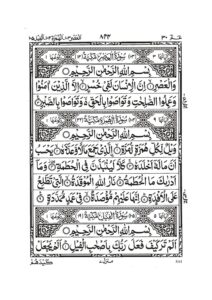 بِسْمِ اللّٰهِ الرَّحْمٰنِ الرَّحِيْمِ
وَالْعَصْرِ اِنَّ الْاِنْسَانَ لَفِيْ خُسْرٍ اِلَّا الَّذِيْنَ اٰمَنُوْا
وَعَمِلُوا الصّٰلِحٰتِ وَتَوَاصَوْا بِالْحَقِّ وَتَوَاصَوْا بِالصَّبْرِ
بِسْمِ اللّٰهِ الرَّحْمٰنِ الرَّحِيْمِ
وَيْلٌ لِّكُلِّ هُمَزَةٍ لُّمَزَةٍ الَّذِيْ جَمَعَ مَالًا وَّعَدَّدَهٗ يَحْسَبُ
اَنَّ مَالَهٗٓ اَخْلَدَهٗ كَلَّا لَيُنْۢبَذَنَّ فِي الْحُطَمَةِ وَمَآ
اَدْرٰىكَ مَا الْحُطَمَةُ نَارُ اللّٰهِ الْمُوْقَدَةُ الَّتِيْ تَطَّلِعُ
عَلَى الْاَفْـِٕدَةِ اِنَّهَا عَلَيْهِمْ مُّؤْصَدَةٌ فِيْ عَمَدٍ مُّمَدَّدَةٍ
بِسْمِ اللّٰهِ الرَّحْمٰنِ الرَّحِيْمِ
اَلَمْ تَرَ كَيْفَ فَعَلَ رَبُّكَ بِاَصْحٰبِ الْفِيْلِ اَلَمْ يَجْعَلْ